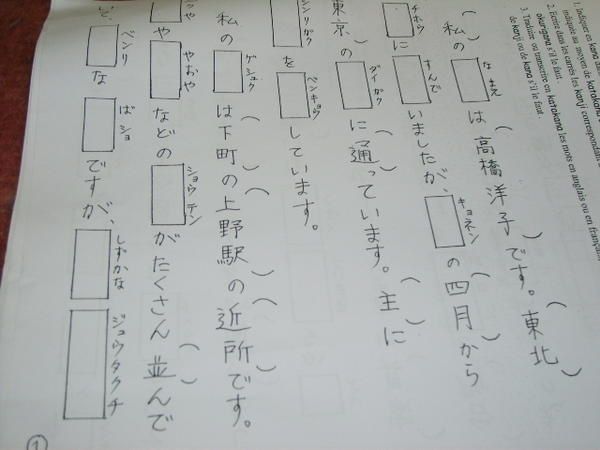 1. Indiquer en kana
indiquée au moyen de
2. Ecrire dans les carrés les kanji correspondant
okurigana s'il le faut.
3. Traduire ou transcrire en katakana les mots en anglais ou en français
de kanji ou de kana s'il le faut.
(私)のなまえは(高橋洋子)です。(東北)
チホウにすんでいましたが、キョネンの(四月)から
東京)のダイガクに(通)っています。(主)に
リガクをベンキョウしています。
私のゲシュクは(下町)の(上野駅)の(近所)です。
やややおやなどのショウテンがたくさん(並)んで
ど、ベンリなばショですが、しずかなジュウタクチ
1